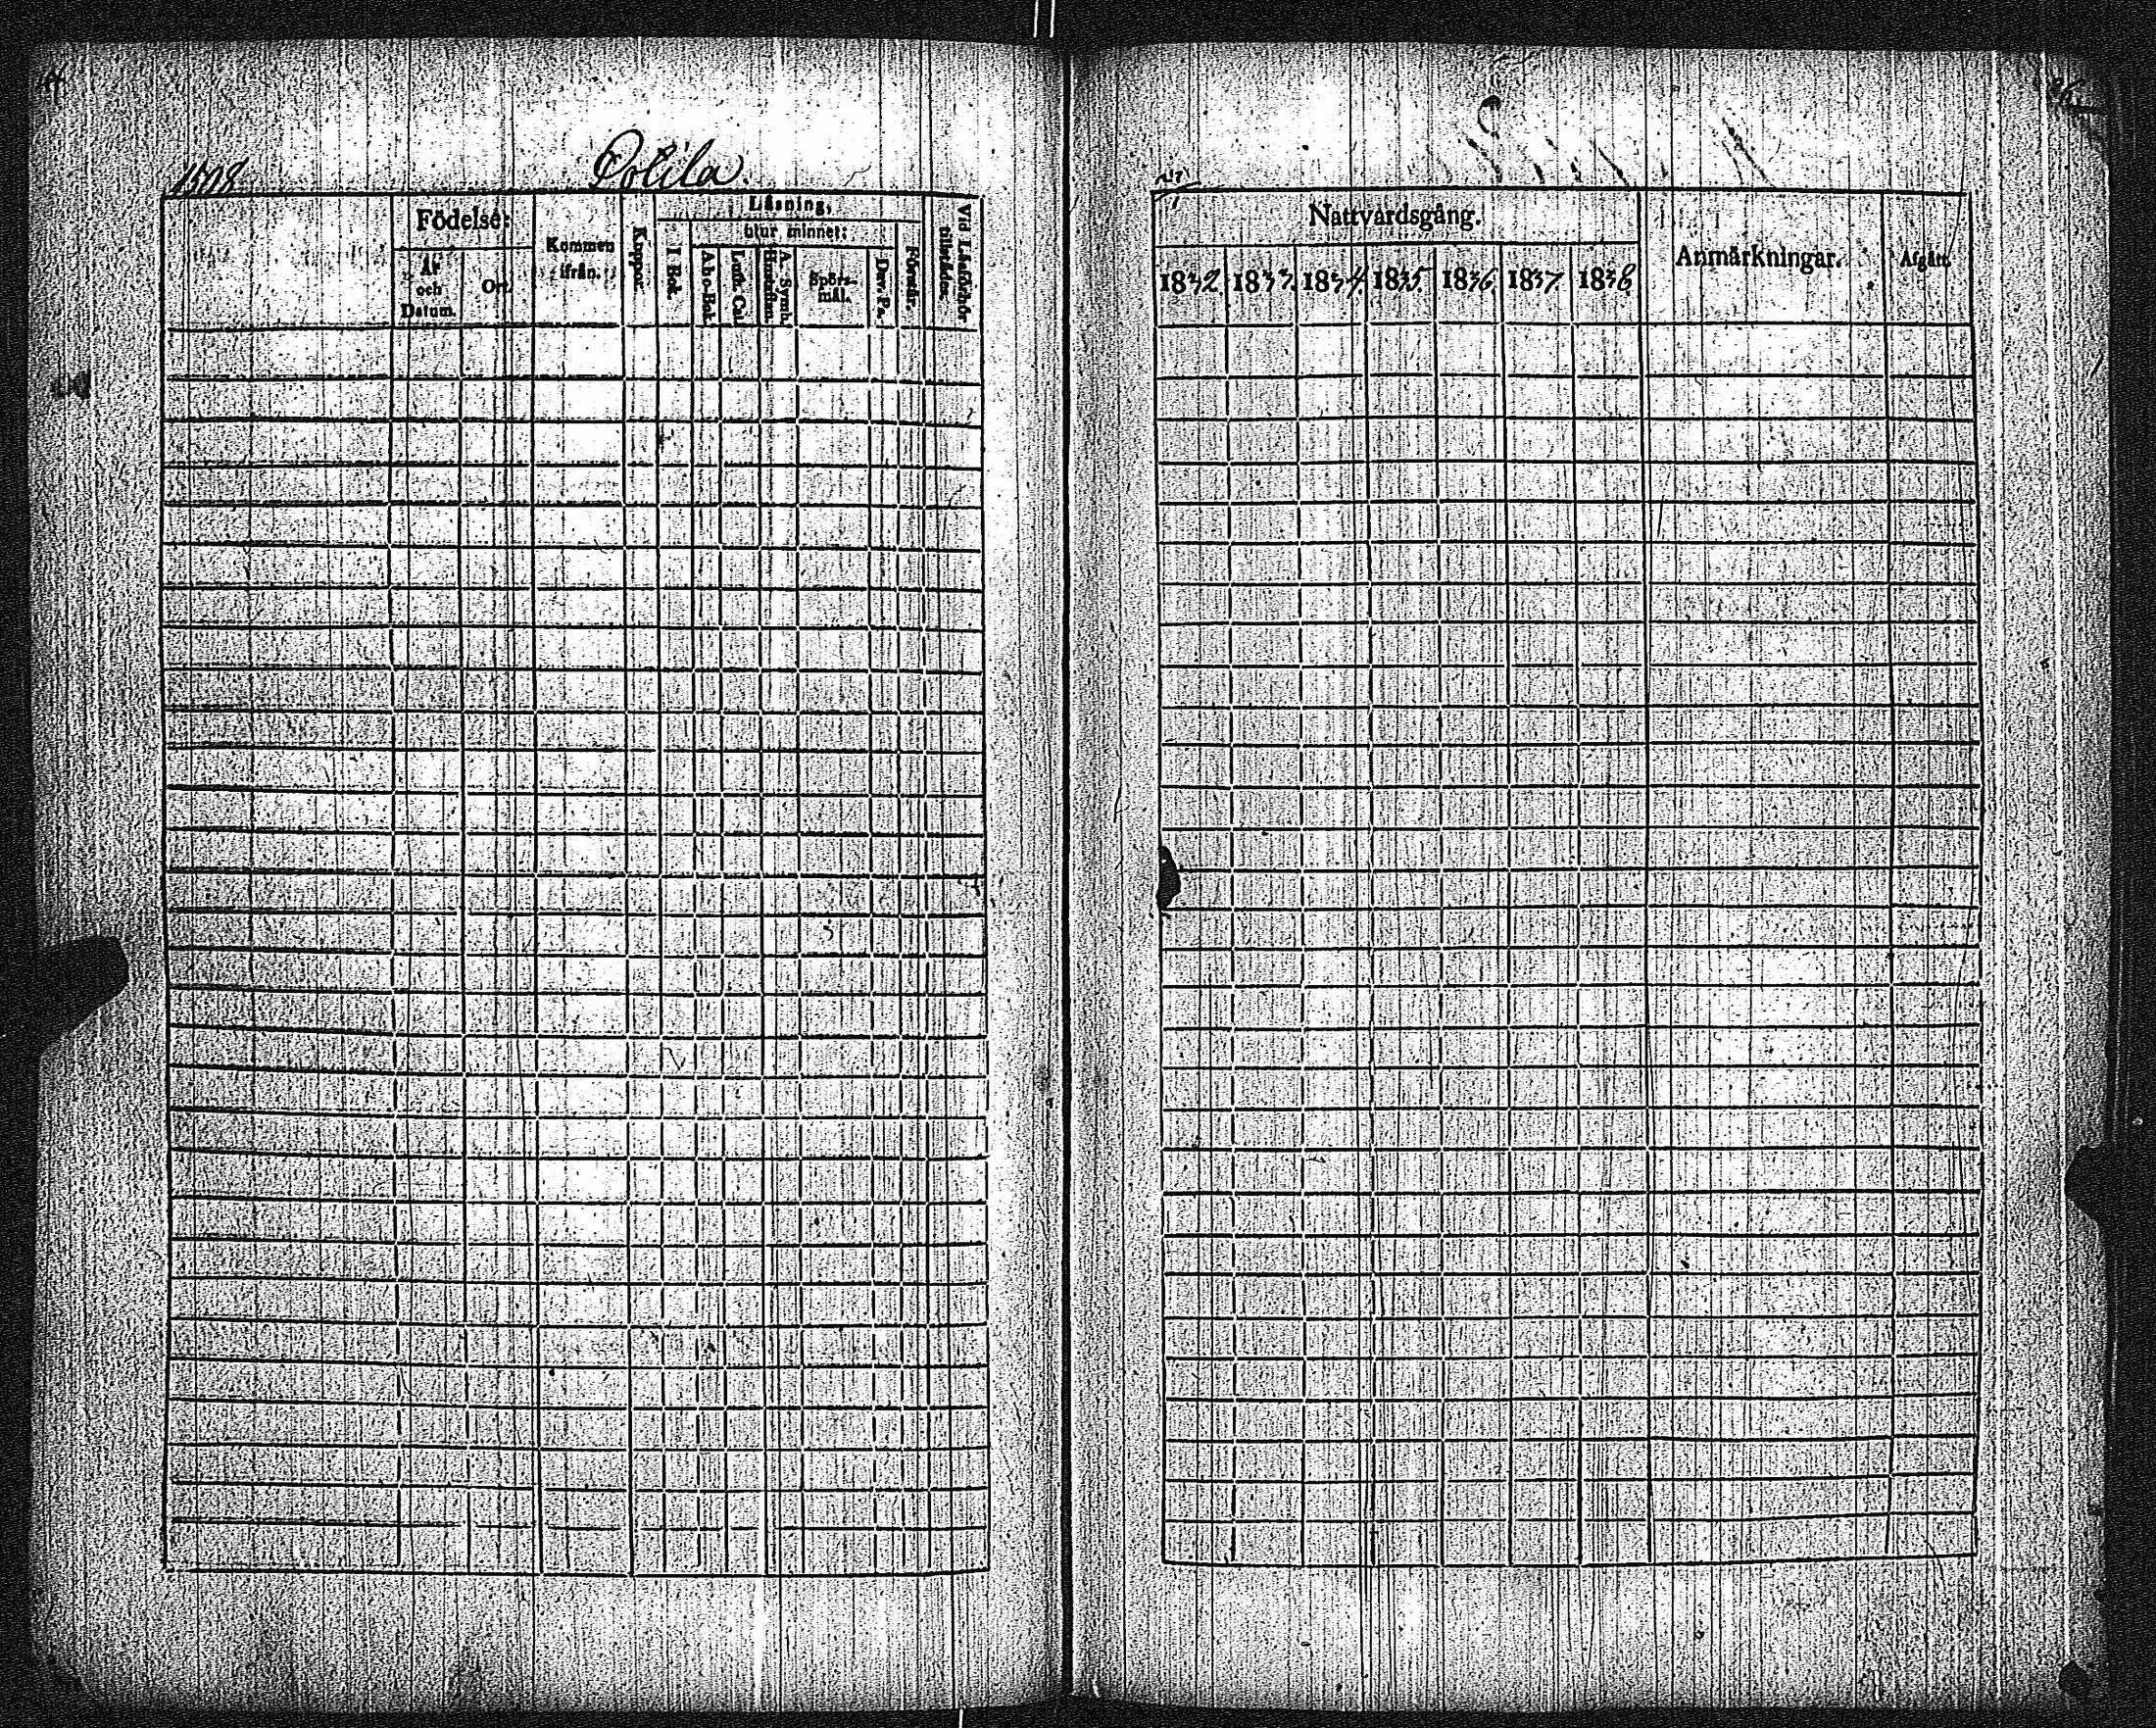 Potila.
Födelse:
Läsning,
Vid Läsförhör
tilstädes.
Kommen
ifrån.
Koppor.
I Bok.
utur minnet:
Förstår.
År
och
Datum.
Ort.
Abc-Bok.
Luth. Cat.
A. Symb.
Hustaflan.
Spörs-
mål.
Dav. Ps.
Nattvardsgång.
Anmärkningar.
Afgått.
1832. 1833. 1834. 1835. 1836. 1837. 1838.